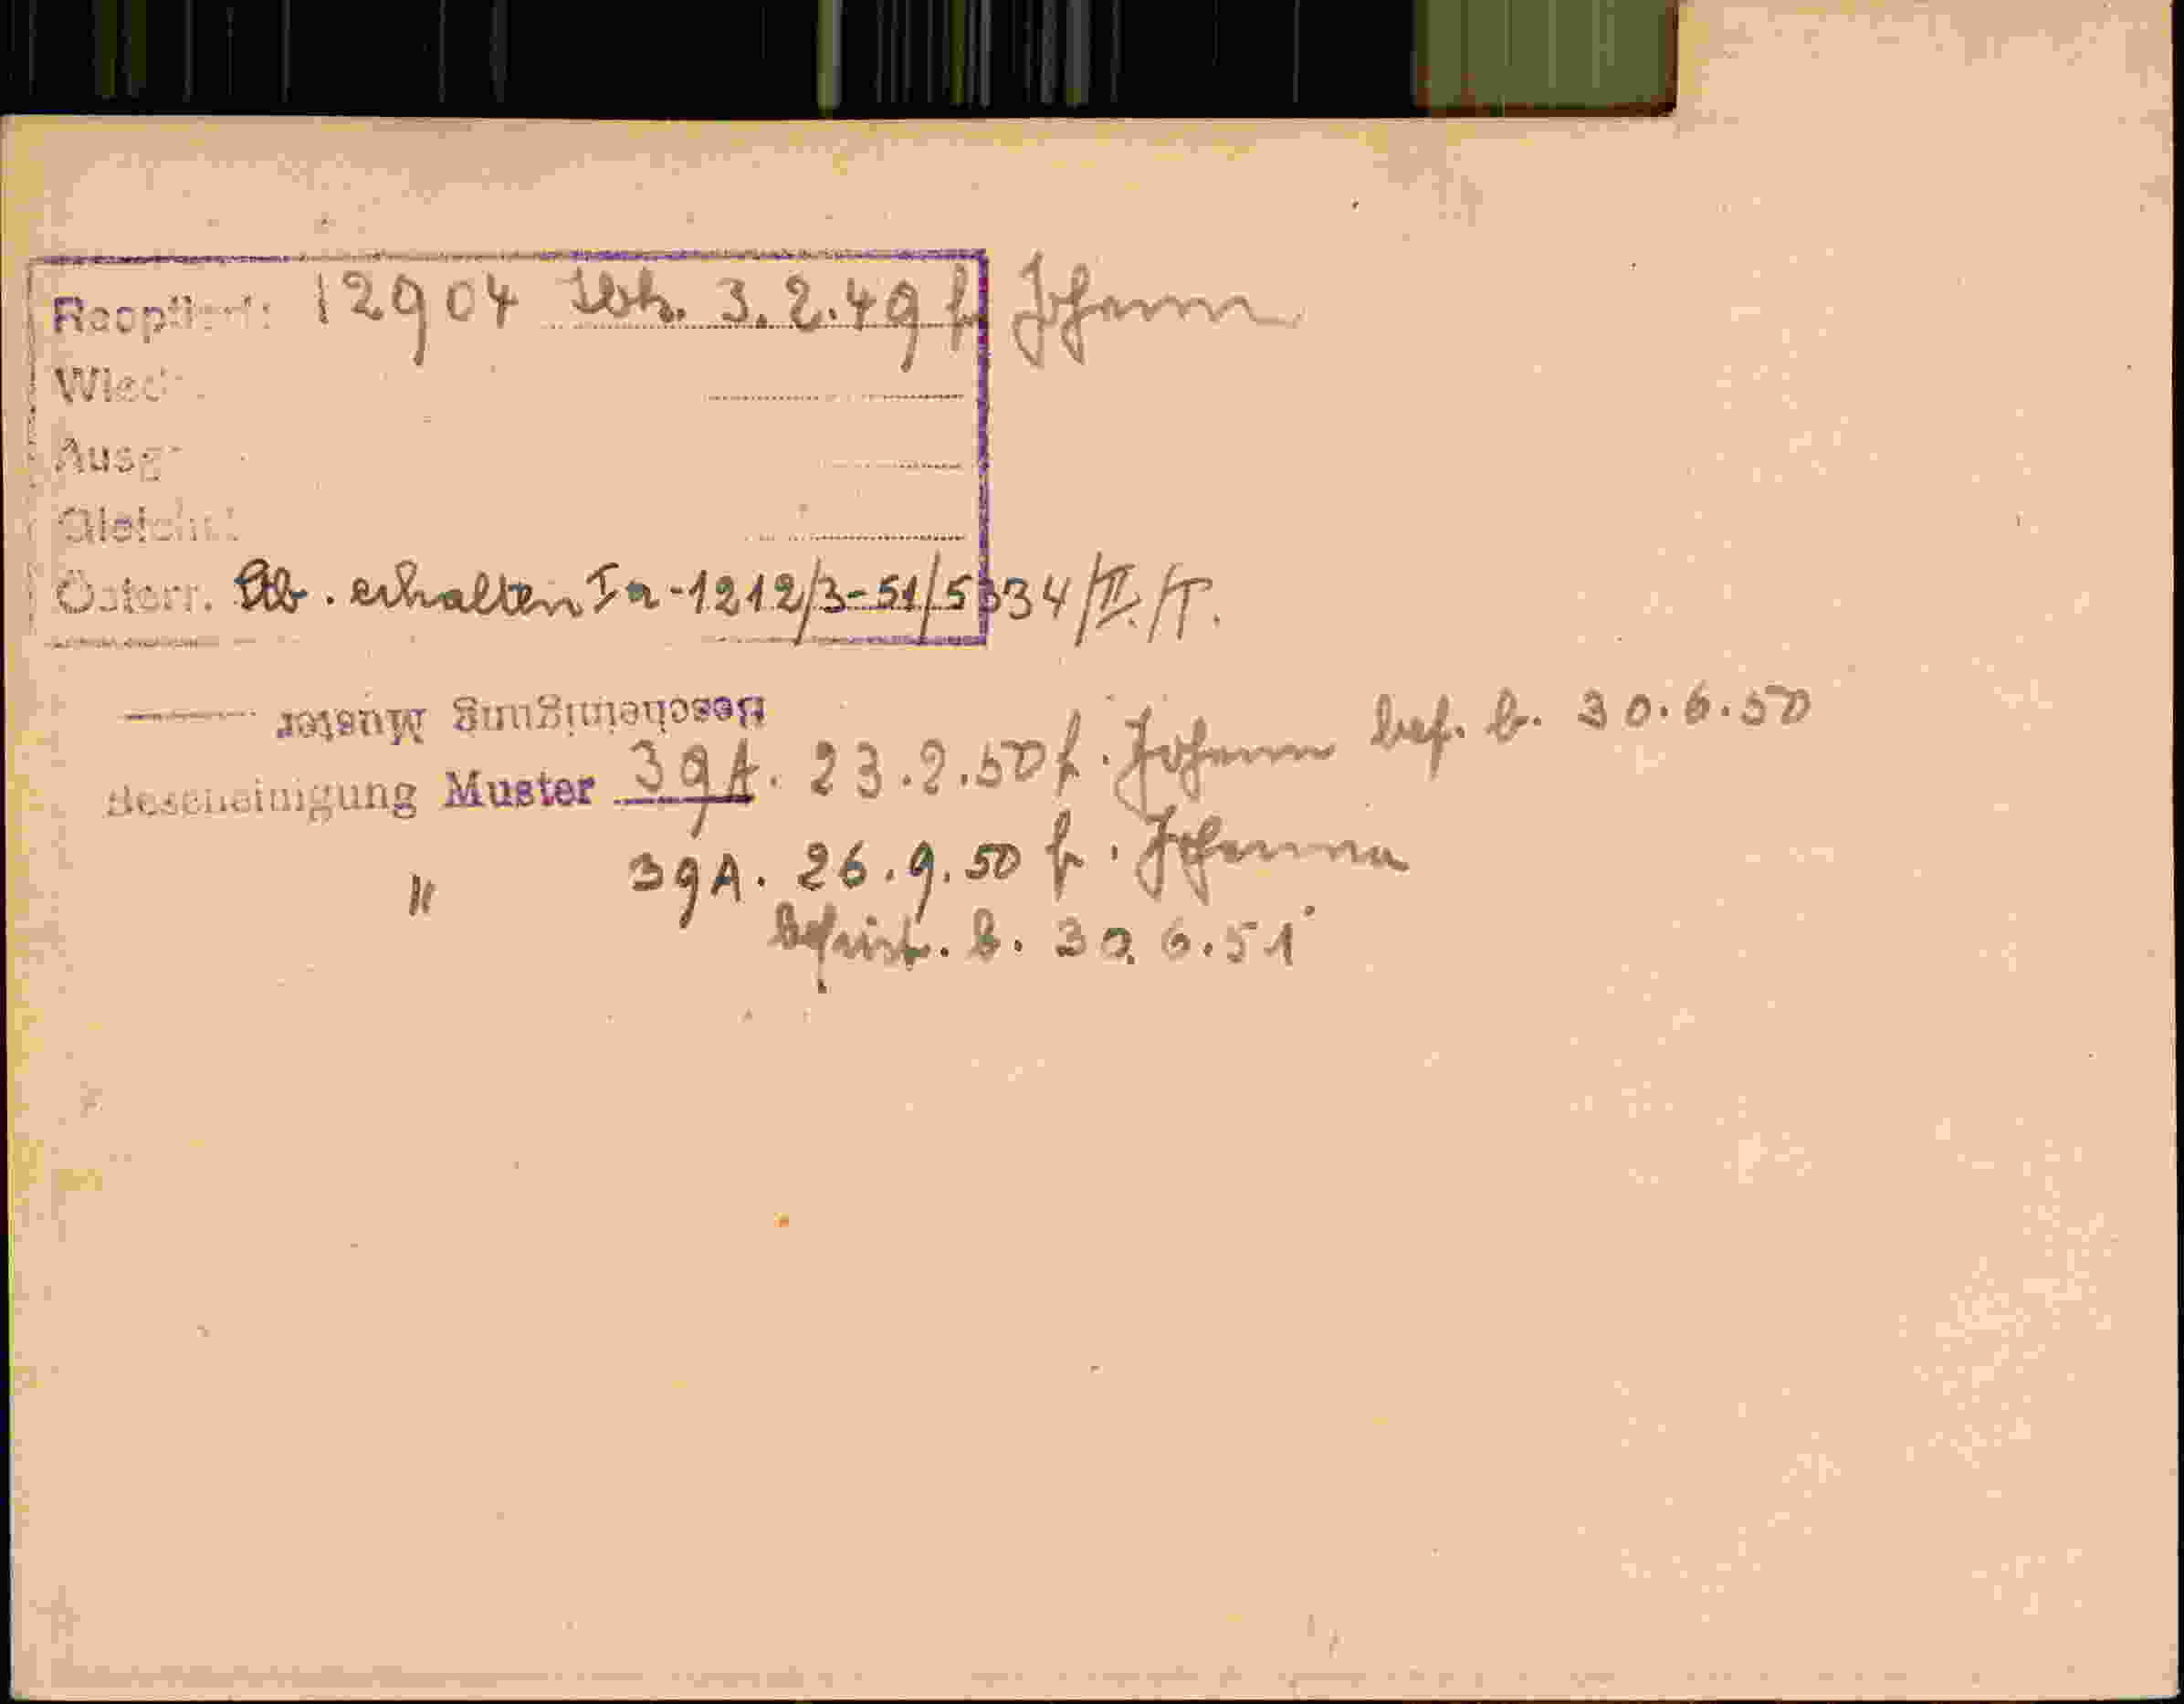 Reoptiert: 12904 Isbk. 3.2.49 f. Johann
Wied
Ausg
Gleich
Österr. Stb. erhalten Ia-1212/3-51/5334/II./T.
Bescheinigung Muster
Bescheinigung Muster 39A. 23.2.50 f. Johann bef. b. 30.6.50
" 39A. 26.9.50 f. Johanna
befrist. b. 30.6.51